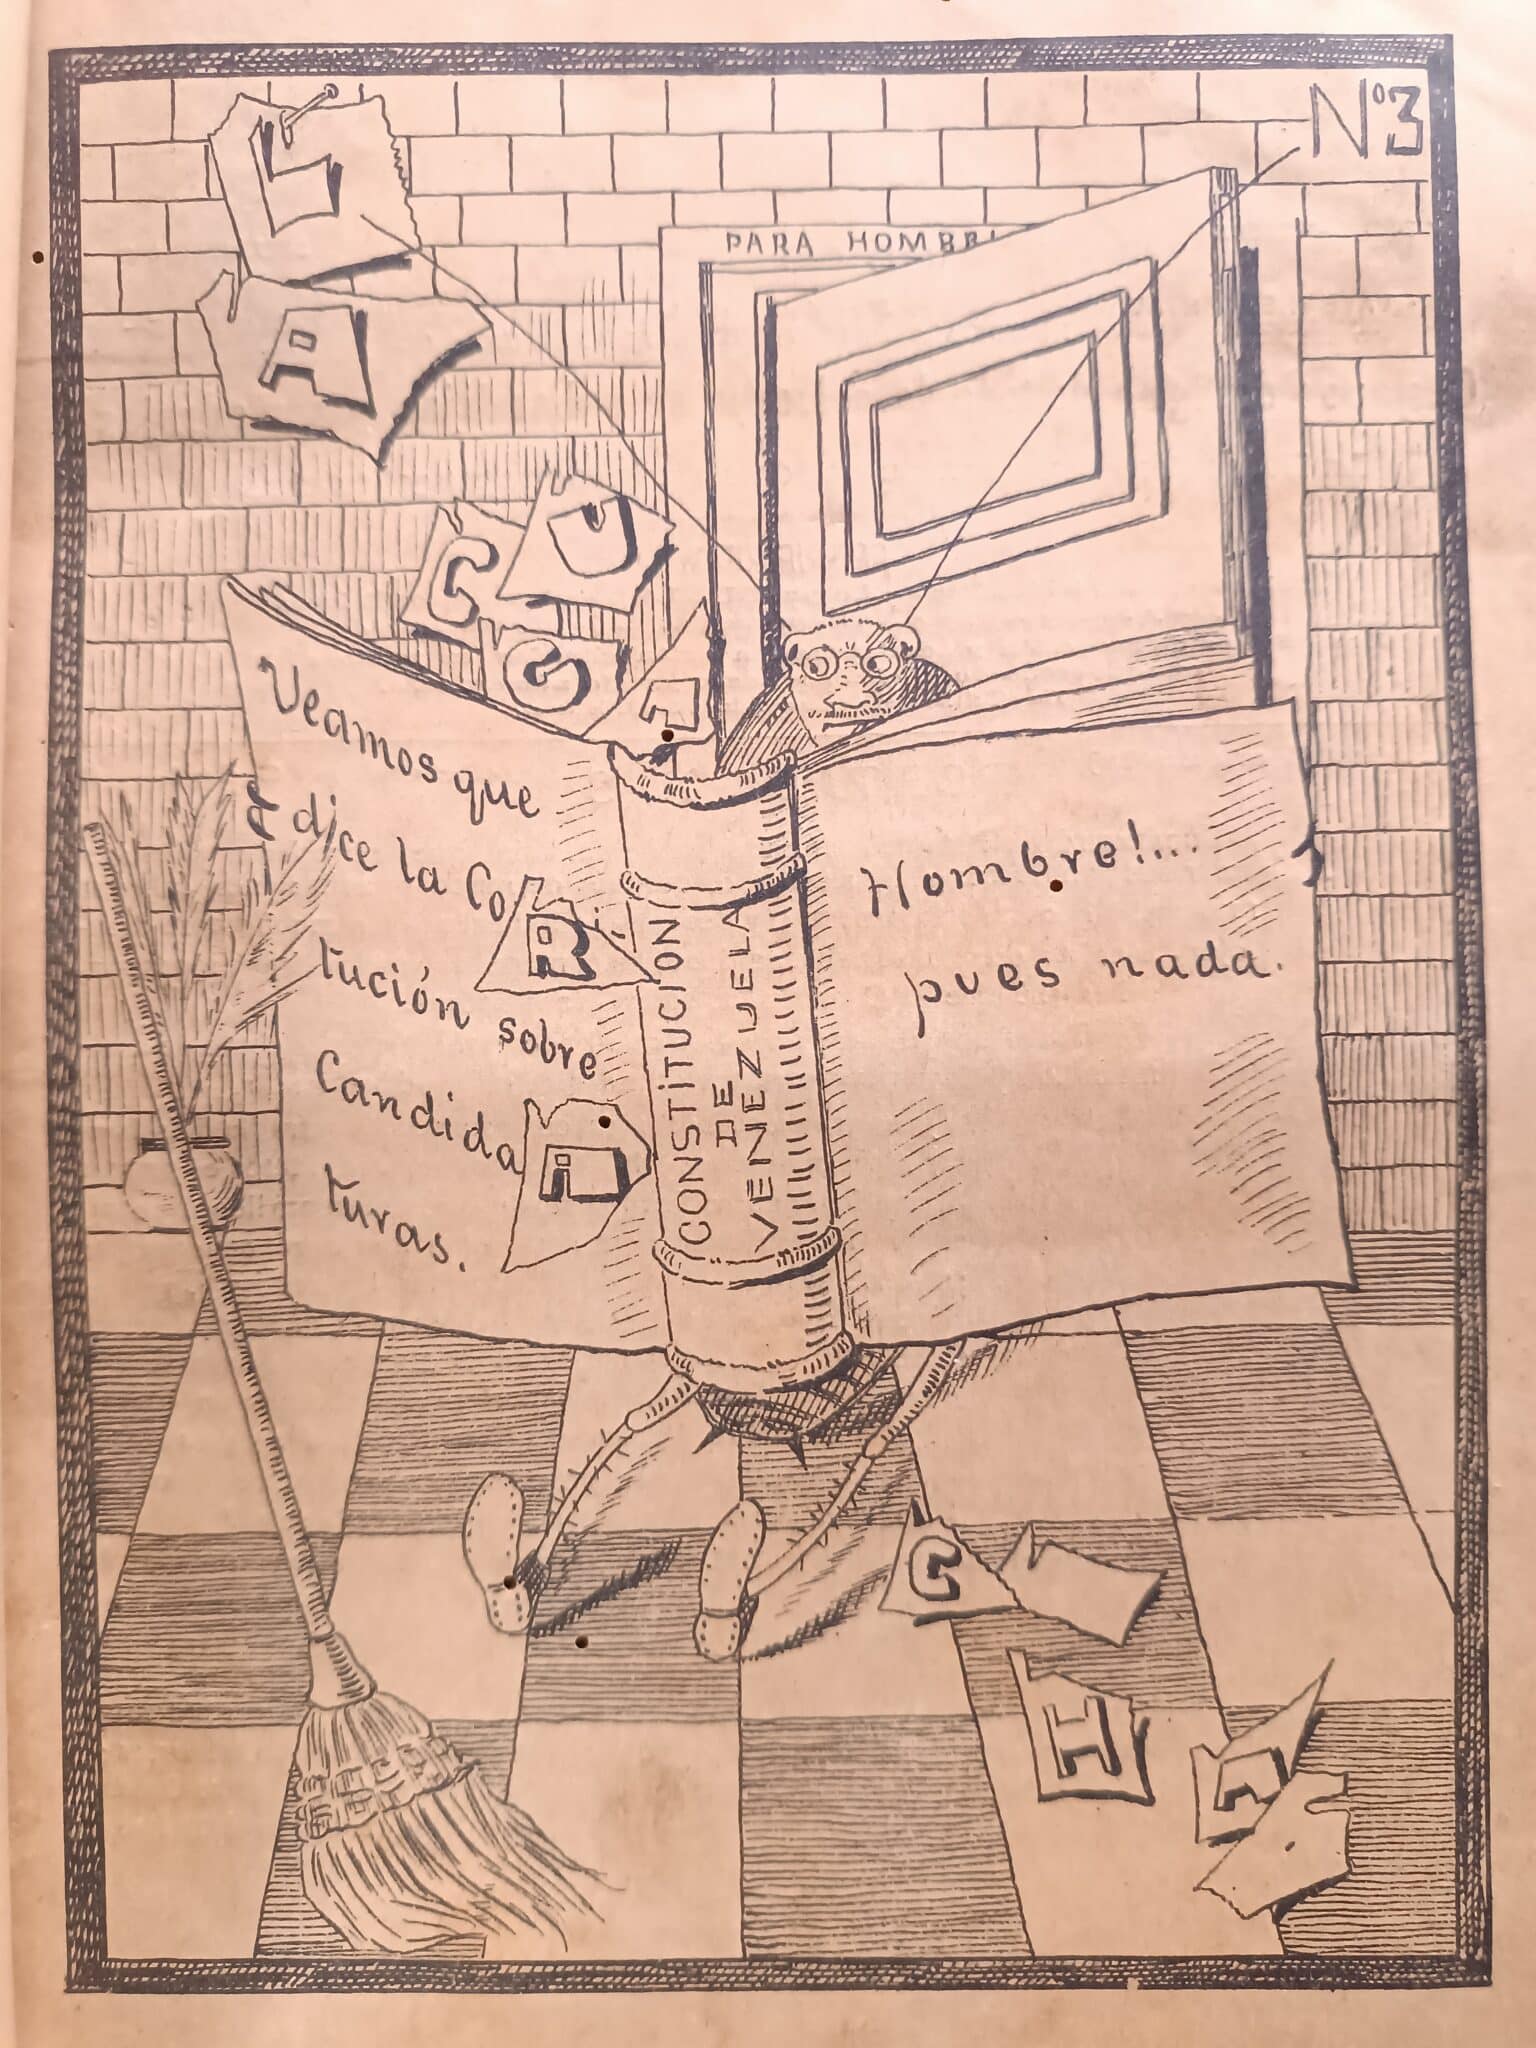 Nº3
L
A
PARA HOMBR
C
U
G
A
Veamos que
dice la Co
R
tución sobre
Candida
A
turas.
CONSTITUCION
DE
VENEZUELA
Hombre!...
pues nada.
C
H